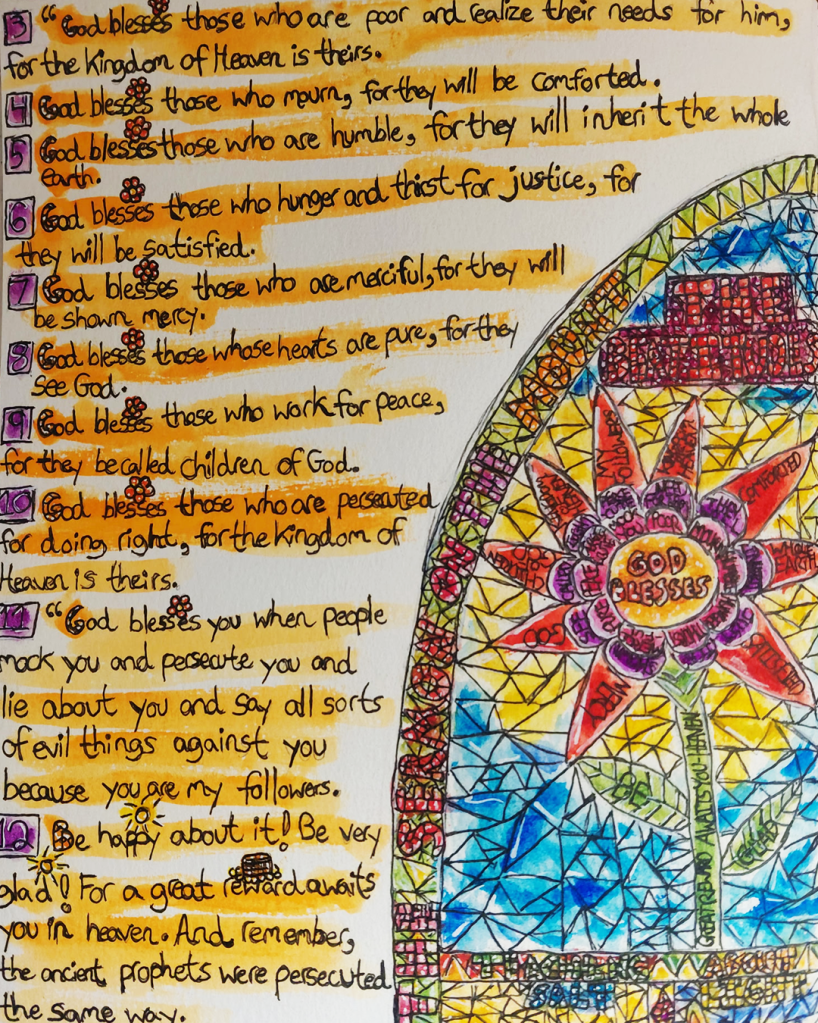 3 “God blesses those who are poor and realize their needs for him,
for the Kingdom of Heaven is theirs.
4 God blesses those who mourn, for they will be comforted.
5 God blesses those who are humble, for they will inherit the whole
earth.
6 God blesses those who hunger and thirst for justice, for
they will be satisfied.
7 God blesses those who are merciful, for they will
be shown mercy.
8 God blesses those whose hearts are pure, for they
see God.
9 God blesses those who work for peace,
for they be called children of God.
10 God blesses those who are persecuted
for doing right, for the kingdom of
Heaven is theirs.
11 “God blesses you when people
mock you and persecute you and
lie about you and say all sorts
of evil things against you
because you are my followers.
12 Be happy about it! Be very
glad! For a great reward awaits
you in heaven. And remember,
the ancient prophets were persecuted
the same way.
THE SERMON ON THE MOUNT
THE
BEATITUDES
GOD
BLESSES
MY FOLLOWERS
COMFORTED
WHOLE EARTH
SATISFIED
MERCY
GOD
CHILDREN OF GOD
GREAT REWARD AWAITS YOU-HEAVEN
BE
GLAD
ABOUT
SALT
LIGHT